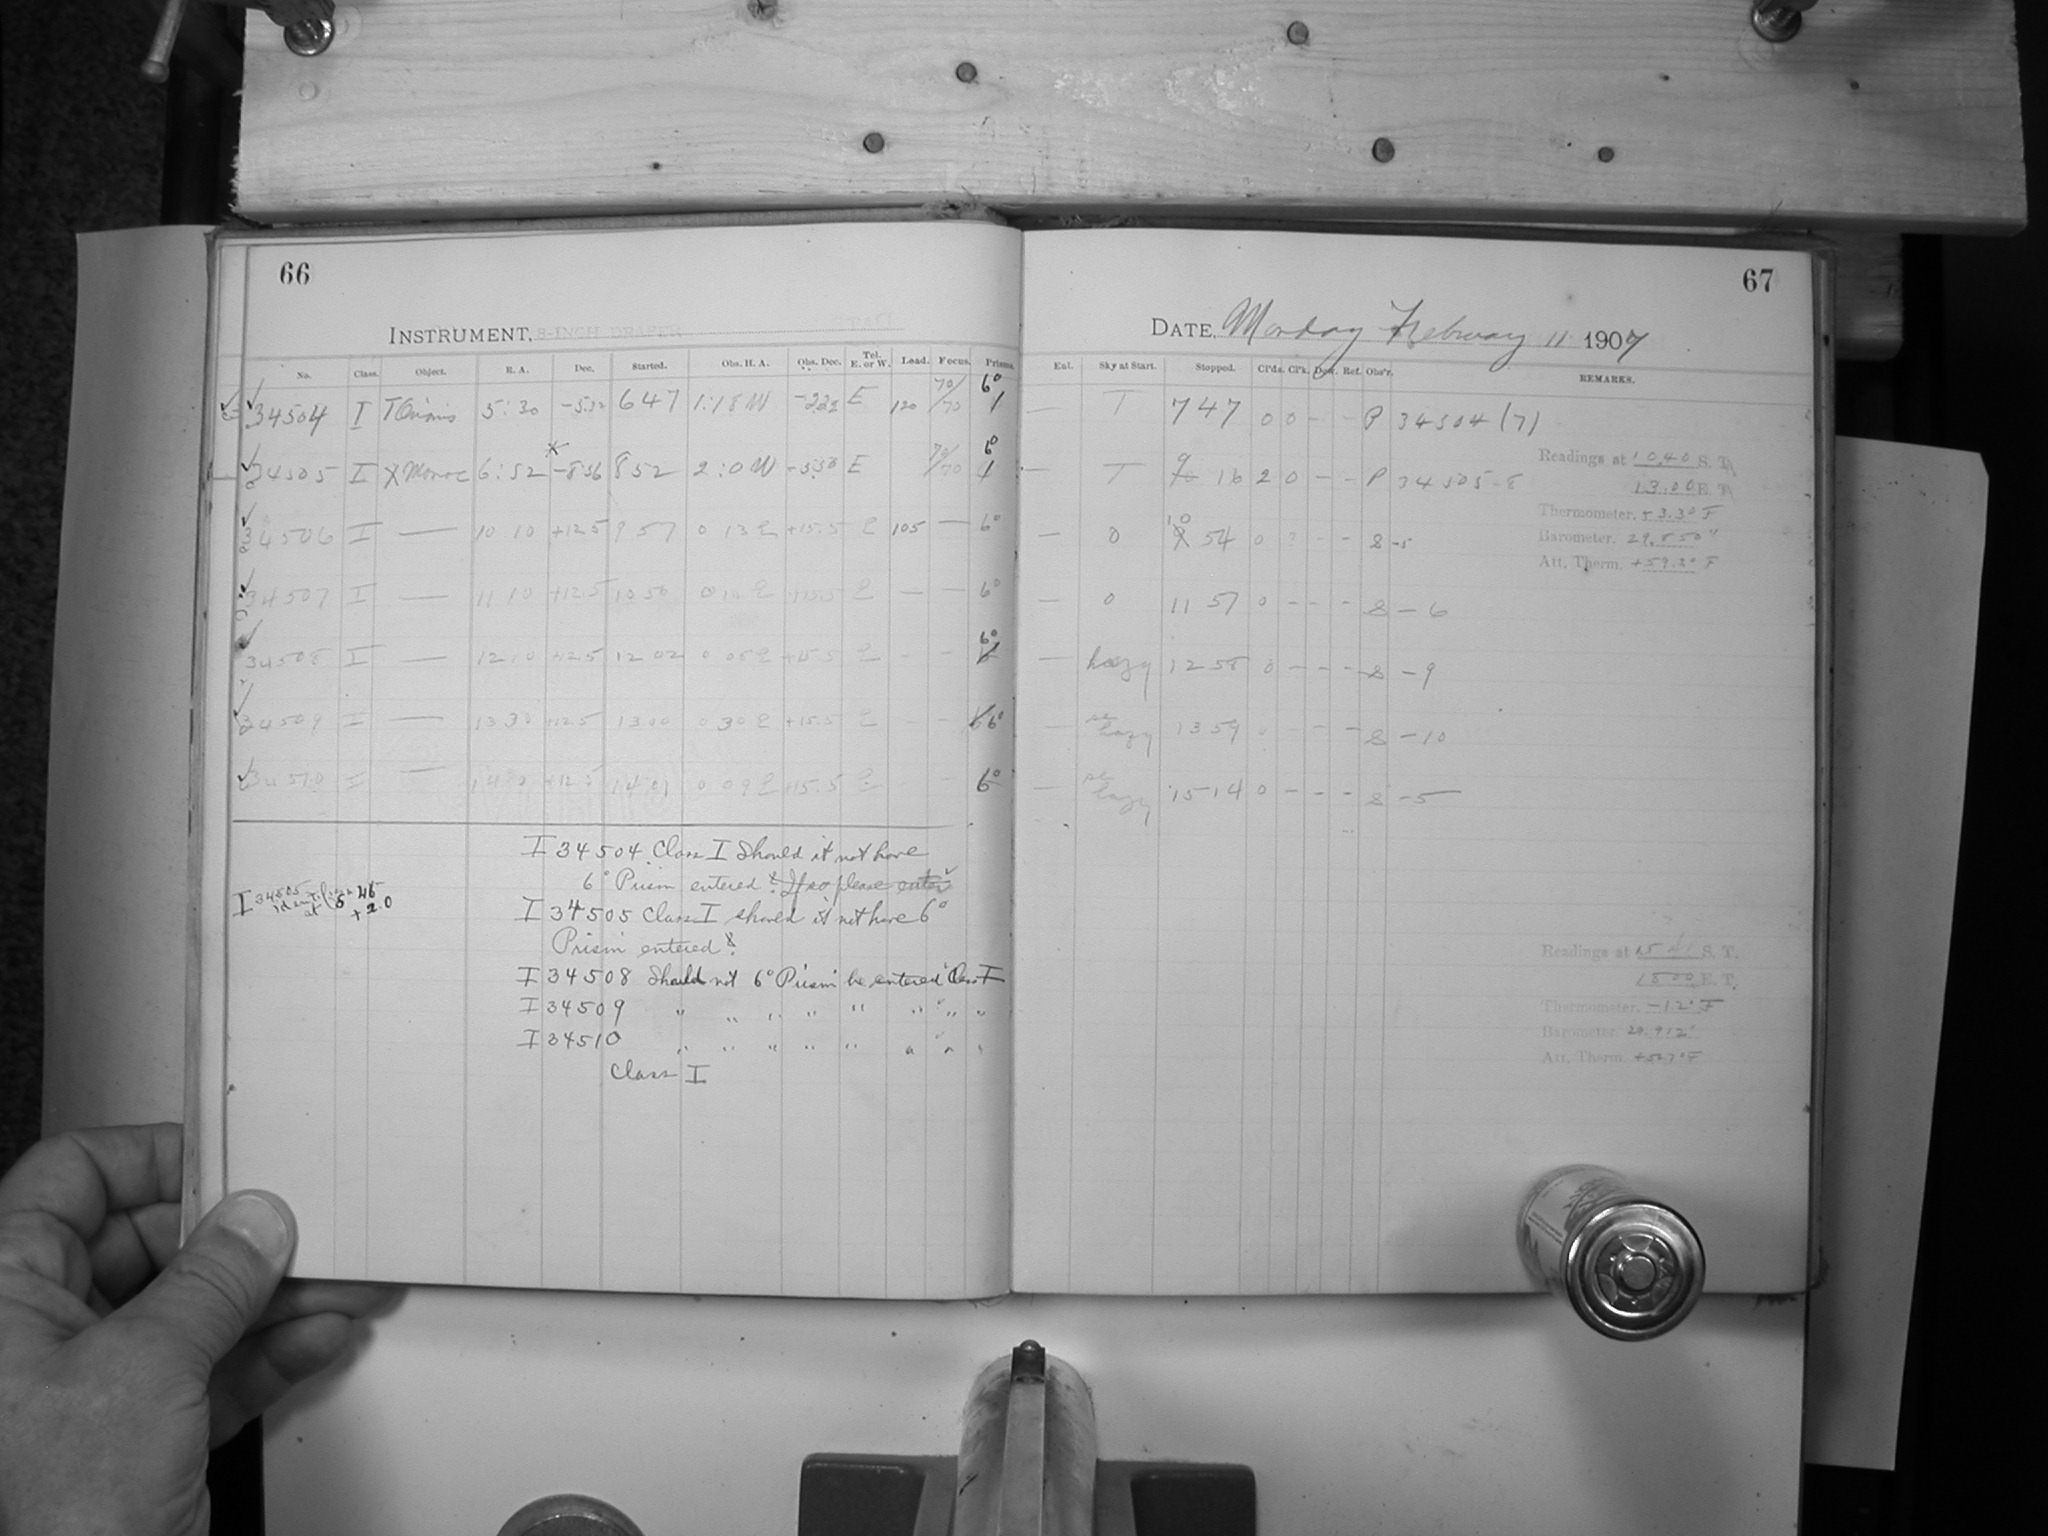 66
INSTRUMENT, 8-INCH DRAPER
No. Class. Object. R. A. Dec. Started. Obs. H. A. Obs. Dec. Tel. E. or W. Load. Focus. Prisms.
34504 I T Orionis 5:30 -5.32 6 47 1:18 W E 120 70/70 6° 1
34505 I X Monoc 6:52 * -8 56 8 52 2:0 W E 70/70 6° 1
34506 I — 10 10 +12 5 9 57 0 13 E +15.5 E 105 — 6°
34507 I — 11 10 +12.5 10 50 E — — 6°
34508 I — 12 10 +12.5 12 02 0 05 E +15.5 E - - 6°
34509 I — 13 30 +12.5 13 00 0 30 E +15.5 E - - 6°
34510 I — +12.5 14 01 0 09 E +15.5 E - 6°
I 34504 Class I Should it not have
6° Prism entered? If so please enter
I 34505 Class I should it not have 6°
Prism entered?
I 34508 Should not 6° Prism be entered Class I
I 34509 " " " " " " " "
I 34510 " " " " " " " "
Class I
I 34505 identifies at 5 46 +2.0
67
DATE, Monday February 11 1907
Enl. Sky at Start. Stopped. Cl'ds. Cl'k. Dew. Ref. Obs'r. REMARKS.
— T 7 47 0 0 - - P 34504 (7)
— T 9 16 2 0 - - P 34505-8
— 0 10 54 0 ? - - S -5
— 0 11 57 0 - - - S - 6
— hazy 12 58 0 - - - S - 9
— hazy 13 59 0 - - - S - 10
— hazy 15 14 0 - - - S - 5
Readings at 10.40 S. T.
13.00 E. T.
Thermometer. +3.3° F
Barometer. 29.850"
Att. Therm. +59.3° F
Readings at S. T.
15 00 E. T.
Thermometer. -1.2° F
Barometer.
Att. Therm.